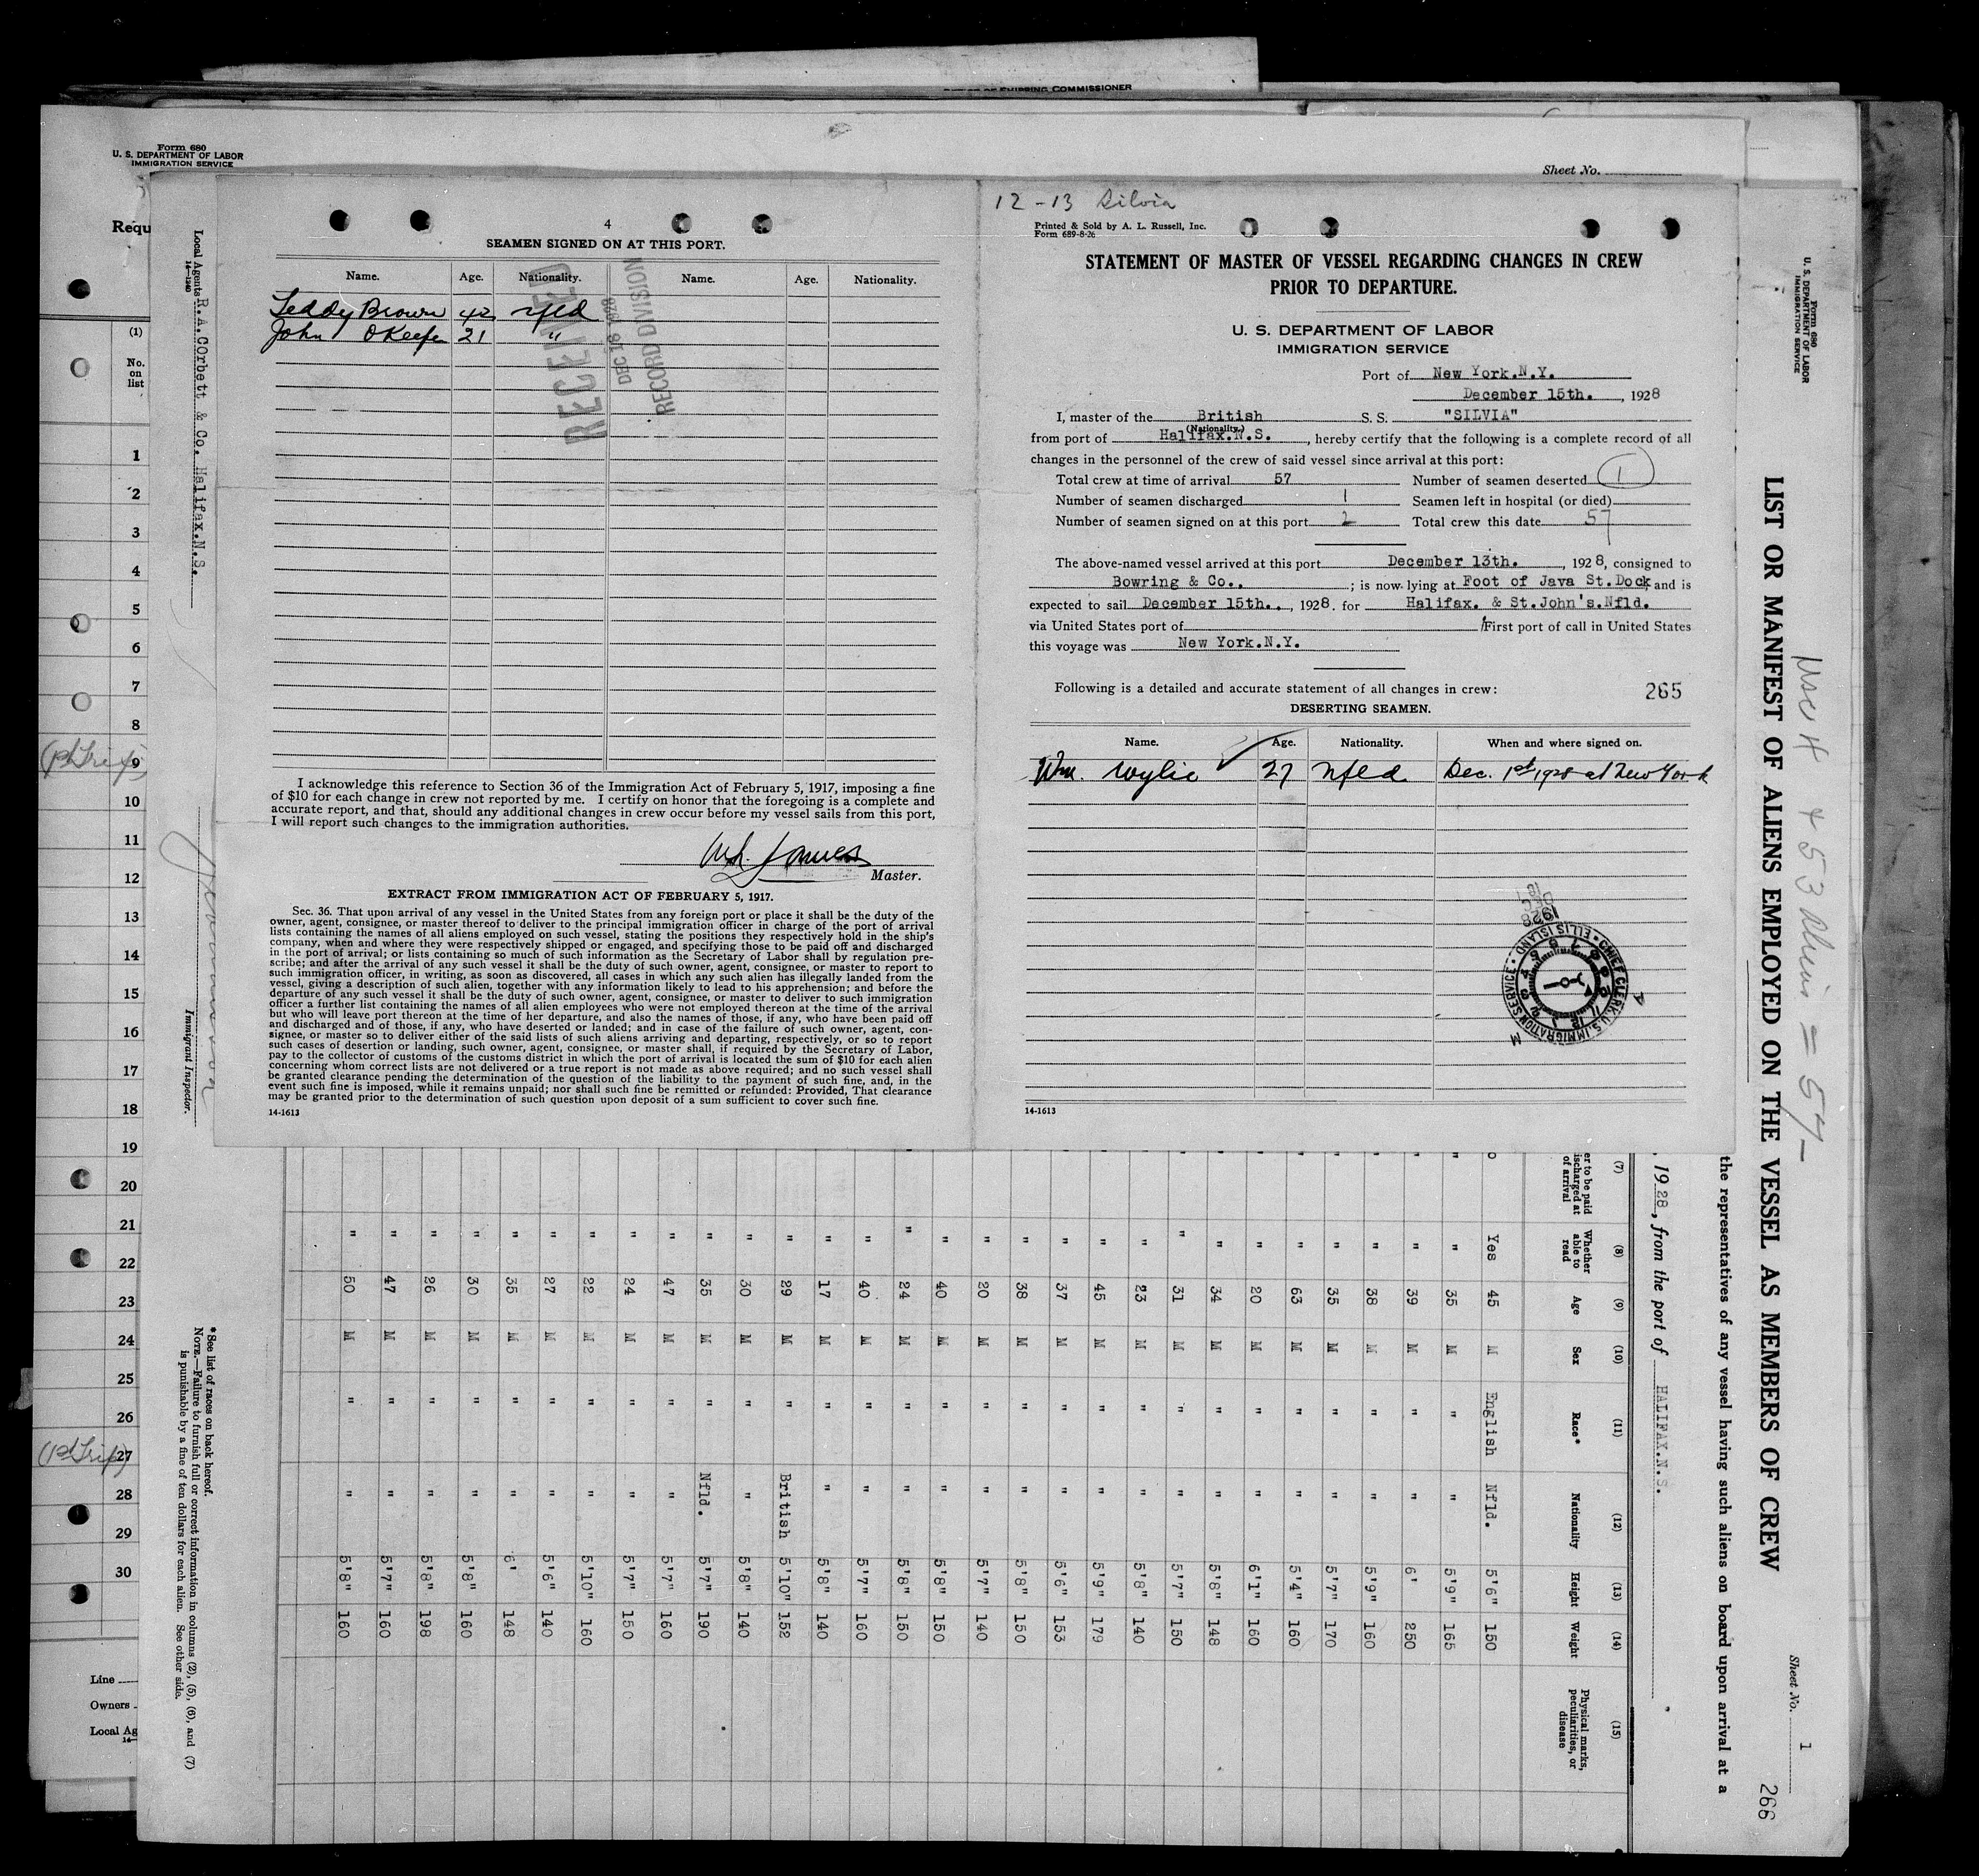 OFFICE OF SHIPPING COMMISSIONER
Form 680
U. S. DEPARTMENT OF LABOR
IMMIGRATION SERVICE
Sheet No.
Requ
(1)
No.
on
list
1
2
3
4
5
6
7
8
9
10
11
12
13
14
15
16
17
18
19
20
21
22
23
24
25
26
27
28
29
30
(1st Trip)
(1st Trip)
Line
Owners
Local Ag
14—
Local Agents R.A.COrbett & Co. Halifax.N.S.
14—1240
Immigrant Inspector.
*See list of races on back hereof.
NOTE.—Failure to furnish full or correct information in columns (2), (5), (6), and (7)
is punishable by a fine of ten dollars for each alien. See other side.
4
SEAMEN SIGNED ON AT THIS PORT.
Name. Age. Nationality. Name. Age. Nationality.
Teddy Brown 42 nfld
John OKeefe 21 "
RECEIVED
DEC 16 1928
RECORD DIVISION
I acknowledge this reference to Section 36 of the Immigration Act of February 5, 1917, imposing a fine
of $10 for each change in crew not reported by me. I certify on honor that the foregoing is a complete and
accurate report, and that, should any additional changes in crew occur before my vessel sails from this port,
I will report such changes to the immigration authorities.
James
Master.
EXTRACT FROM IMMIGRATION ACT OF FEBRUARY 5, 1917.
Sec. 36. That upon arrival of any vessel in the United States from any foreign port or place it shall be the duty of the
owner, agent, consignee, or master thereof to deliver to the principal immigration officer in charge of the port of arrival
lists containing the names of all aliens employed on such vessel, stating the positions they respectively hold in the ship's
company, when and where they were respectively shipped or engaged, and specifying those to be paid off and discharged
in the port of arrival; or lists containing so much of such information as the Secretary of Labor shall by regulation pre-
scribe; and after the arrival of any such vessel it shall be the duty of such owner, agent, consignee, or master to report to
such immigration officer, in writing, as soon as discovered, all cases in which any such alien has illegally landed from the
vessel, giving a description of such alien, together with any information likely to lead to his apprehension; and before the
departure of any such vessel it shall be the duty of such owner, agent, consignee, or master to deliver to such immigration
officer a further list containing the names of all alien employees who were not employed thereon at the time of the arrival
but who will leave port thereon at the time of her departure, and also the names of those, if any, who have been paid off
and discharged and of those, if any, who have deserted or landed; and in case of the failure of such owner, agent, con-
signee, or master so to deliver either of the said lists of such aliens arriving and departing, respectively, or so to report
such cases of desertion or landing, such owner, agent, consignee, or master shall, if required by the Secretary of Labor,
pay to the collector of customs of the customs district in which the port of arrival is located the sum of $10 for each alien
concerning whom correct lists are not delivered or a true report is not made as above required; and no such vessel shall
be granted clearance pending the determination of the question of the liability to the payment of such fine, and, in the
event such fine is imposed, while it remains unpaid; nor shall such fine be remitted or refunded: Provided, That clearance
may be granted prior to the determination of such question upon deposit of a sum sufficient to cover such fine.
14-1613
12-13 Silvia
Printed & Sold by A. L. Russell, Inc.
Form 689-8-26
STATEMENT OF MASTER OF VESSEL REGARDING CHANGES IN CREW
PRIOR TO DEPARTURE.
U. S. DEPARTMENT OF LABOR
IMMIGRATION SERVICE
Port of New York.N.Y.
December 15th. , 1928
I, master of the British S. S. "SILVIA"
(Nationality.)
from port of Halifax.N.S. , hereby certify that the following is a complete record of all
changes in the personnel of the crew of said vessel since arrival at this port:
Total crew at time of arrival 57 Number of seamen deserted 1
Number of seamen discharged 1 Seamen left in hospital (or died)
Number of seamen signed on at this port 2 Total crew this date 57
The above-named vessel arrived at this port December 13th. , 1928, consigned to
Bowring & Co.. ; is now lying at Foot of Java St.Dock, and is
expected to sail December 15th. , 1928. for Halifax. & St.John's.Nfld.
via United States port of First port of call in United States
this voyage was New York.N.Y.
Following is a detailed and accurate statement of all changes in crew: 265
DESERTING SEAMEN.
Name. Age. Nationality. When and where signed on.
Wm. Wylie 27 Nfld Dec. 1st 1928 at New York
1928
CHIEF CLERK, U.S. IMMIGRATION SERVICE • ELLIS ISLAND •
14-1613
Form 680
U. S. DEPARTMENT OF LABOR
IMMIGRATION SERVICE
Sheet No. 1
266
LIST OR MANIFEST OF ALIENS EMPLOYED ON THE VESSEL AS MEMBERS OF CREW
4 + 53 Aliens = 57-
the representatives of any vessel having such aliens on board upon arrival at a
, 1928, from the port of HALIFAX.N.S.
(7) (8) (9) (10) (11) (12) (13) (14) (15)
er to be paid
ischarged at
of arrival
Whether
able to
read
Age
Sex
Race*
Nationality
Height
Weight
Physical marks,
peculiarities, or
disease
o Yes 45 M English Nfld. 5'6" 150
" " 35 M " " 5'9" 165
" " 39 M " " 6' 250
" " 38 M " " 5'9" 160
" " 35 M " " 5'7" 170
" " 63 M " " 5'4" 160
" " 20 M " " 6'1" 160
" " 34 M " " 5'8" 148
" " 31 M " " 5'7" 150
" " 23 M " " 5'8" 140
" " 45 M " " 5'9" 179
" " 37 M " " 5'6" 153
" " 38 M " " 5'8" 150
" " 20 M " " 5'7" 140
" " 40 M " " 5'8" 150
" " 24 M " " 5'8" 150
" " 40 M " " 5'7" 160
" " 17 M " " 5'8" 140
" " 29 M " British 5'10" 152
" " 30 M " " 5'8" 140
" " 35 M " Nfld. 5'7" 190
" " 47 M " " 5'7" 160
" " 24 M " " 5'7" 150
" " 22 M " " 5'10" 160
" " 27 M " " 5'6" 140
" " 35 M " " 6' 148
" " 30 M " " 5'8" 160
" " 26 M " " 5'8" 198
" " 47 M " " 5'7" 160
" " 50 M " " 5'8" 160